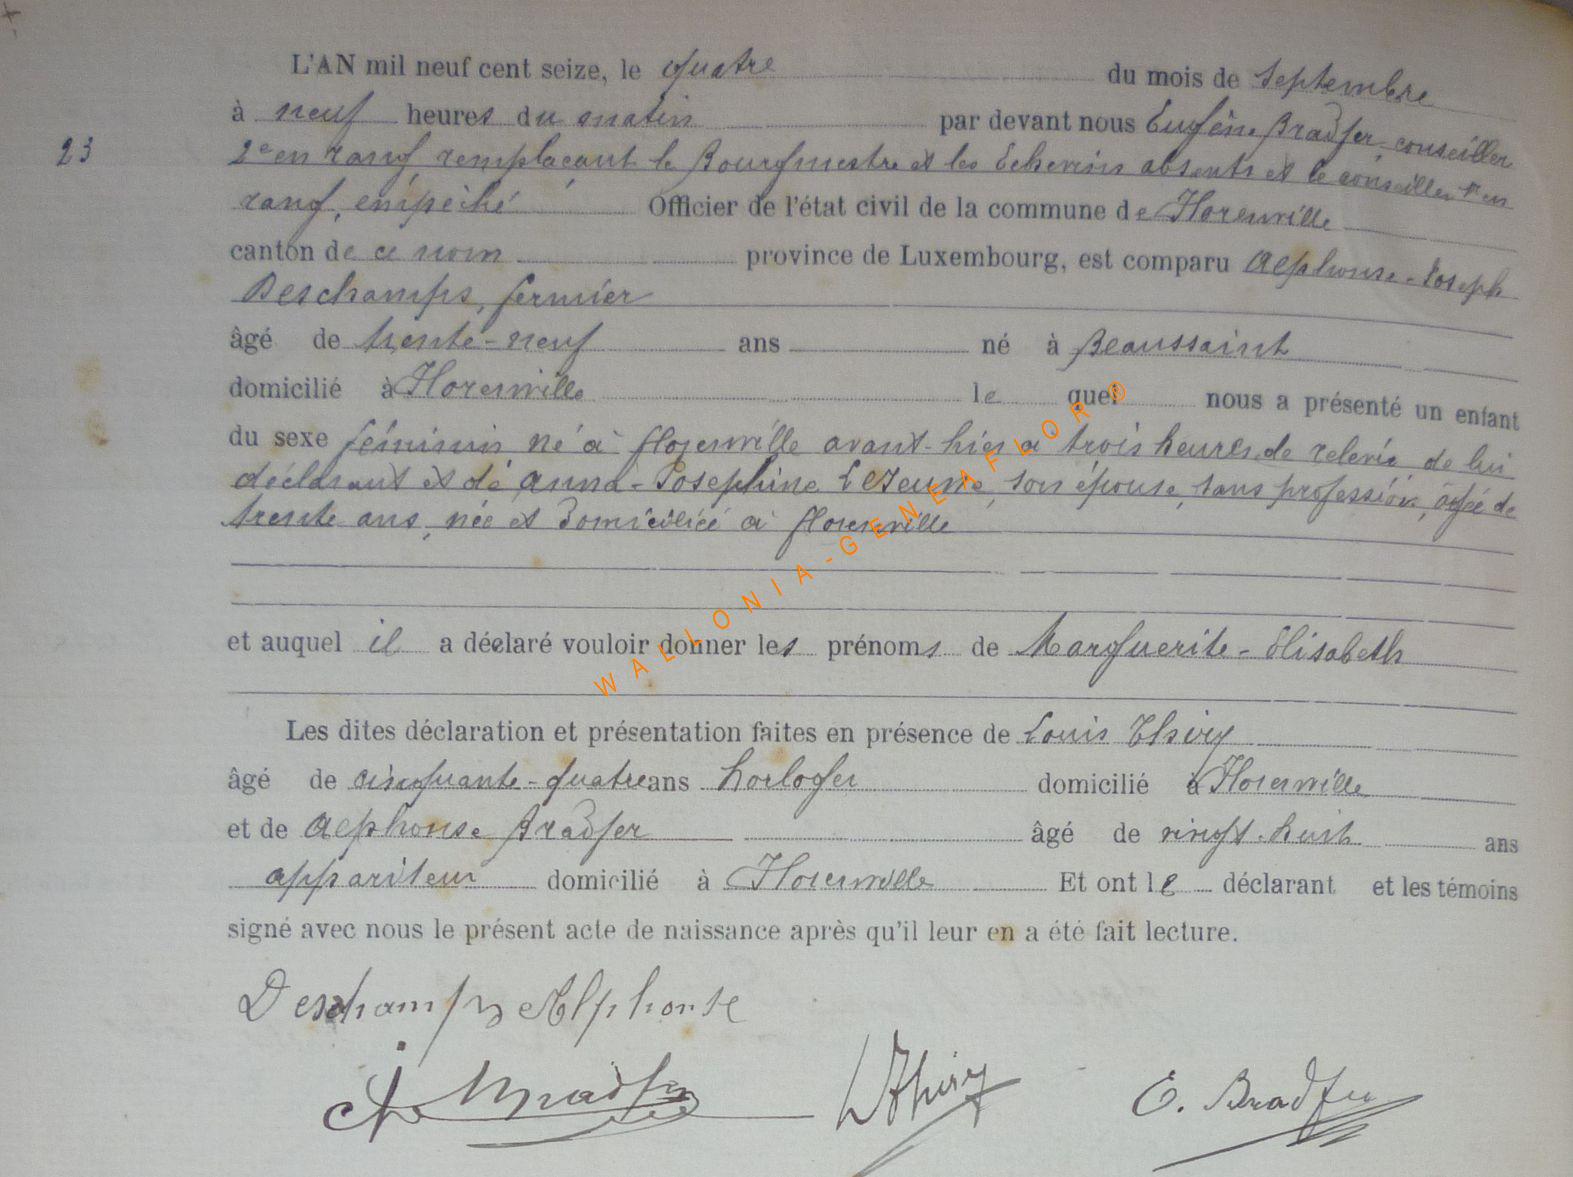 L'AN mil neuf cent seize, le quatre du mois de Septembre
à neuf heures du matin par devant nous Eugène Bradfer, conseiller
23
2e en rang, remplaçant le Bourgmestre et les Echevins absents et le conseiller 1er en
rang, empêché Officier de l'état civil de la commune de Florenville
canton de ce nom province de Luxembourg, est comparu Alphonse-Joseph
Deschamps, fermier
âgé de trente-neuf ans né à Beaussaint
domicilié à Florenville le quel nous a présenté un enfant
du sexe féminin né à Florenville avant-hier à trois heures de relevée de lui
déclarant et de Anna-Josephine LeJeune, son épouse, sans profession, âgée de
trente ans, née et domiciliée à Florenville
et auquel il a déclaré vouloir donner les prénoms de Marguerite-Elisabeth
Les dites déclaration et présentation faites en présence de Louis Thiry
âgé de cinquante-quatre ans horloger domicilié à Florenville
et de Alphonse Bradfer âgé de vingt-huit ans
appariteur domicilié à Florenville Et ont le déclarant et les témoins
signé avec nous le présent acte de naissance après qu'il leur en a été fait lecture.
Deschamps Alphonse
A Bradfer L Thiry E. Bradfer
WALLONIA-GENEAFLOR®